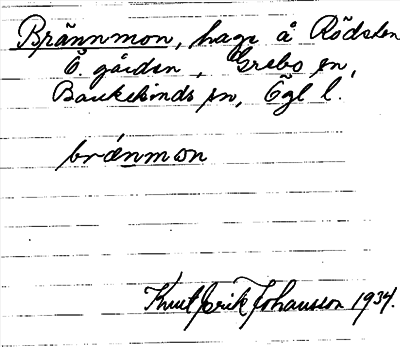 Brännmon, hage å Rödsten
Ö. gården, Grebo sn,
Bankekinds hd, Ögl l.
brǽnmon
Knut Erik Johansson 1934.